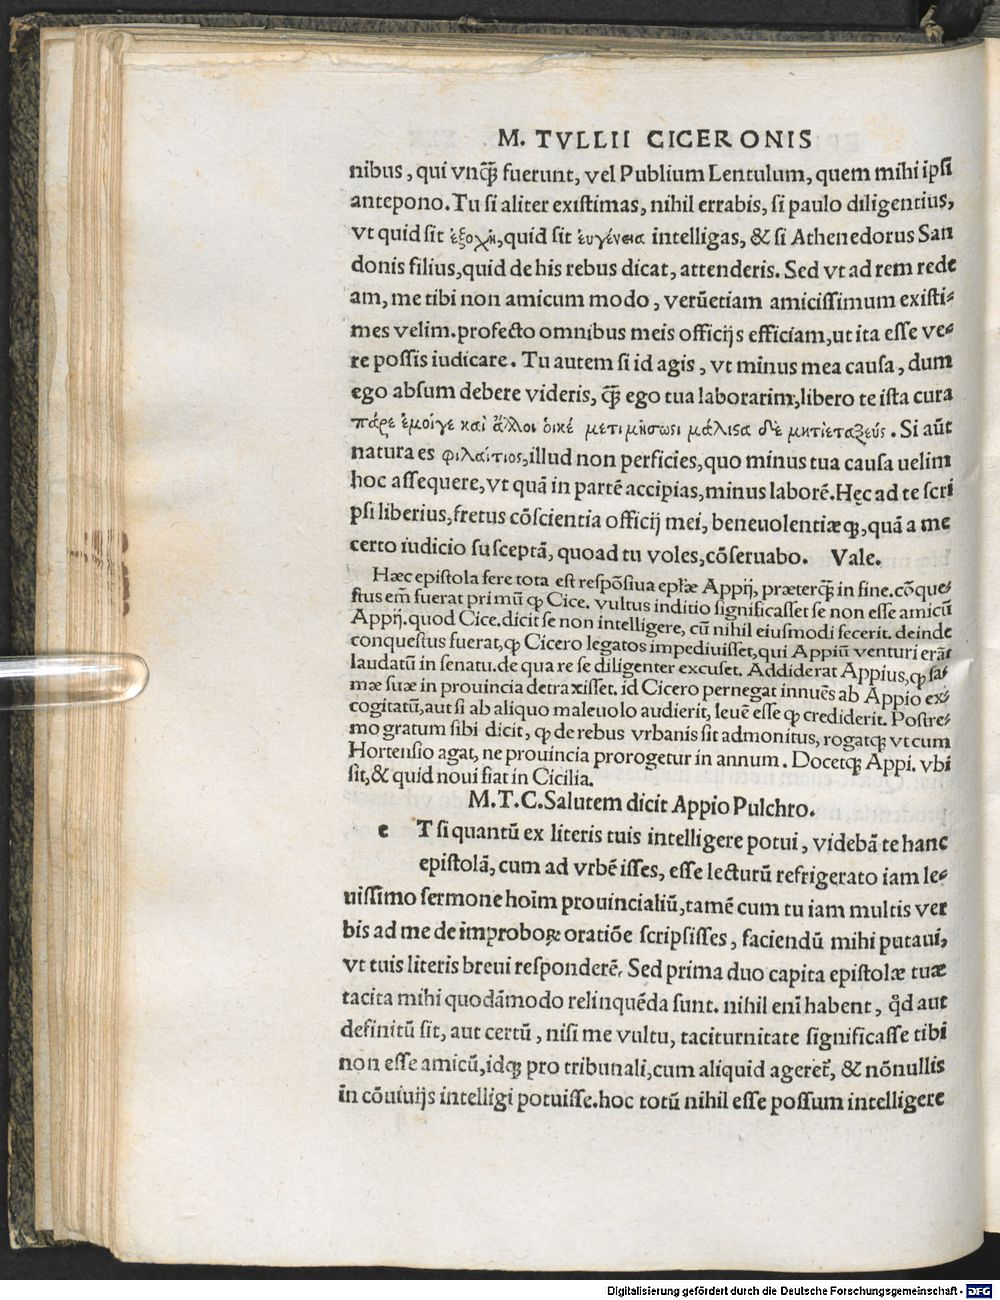 M. TVLLII CICERONIS
nibus, qui vnq̃ꝫ fuerunt, vel Publium Lentulum, quem mihi ipsi
antepono. Tu si aliter existimas, nihil errabis, si paulo diligentius,
vt quid sit ἐξοχὴ, quid sit ἐυγένεια intelligas, & si Athenedorus San
donis filius, quid de his rebus dicat, attenderis. Sed vt ad rem rede
am, me tibi non amicum modo, verũetiam amicissimum existi⸗
mes velim. profecto omnibus meis officijs efficiam, ut ita esse ve⸗
re possis iudicare. Tu autem si id agis, vt minus mea causa, dum
ego absum debere videris, q̃ꝫ ego tua laborarim, libero te ista cura
πάρε ἐμοίγε καὶ ἄλλοι ὁικέ μετιμὴσωσι μάλιϛα δὲ μητίεταξεύς. Si aũt
natura es φιλαίτιος, illud non perficies, quo minus tua causa uelim
hoc assequere, vt quã in partẽ accipias, minus laborẽ. Hęc ad te scri
psi liberius, fretus cõscientia officij mei, beneuolentiæqꝫ, quã a me
certo iudicio susceptã, quoad tu voles, cõseruabo. Vale.
Hæc epistola fere tota est respõsiua epłæ Appij, præterq̃ꝫ in fine. cõque⸗
stus em̃ fuerat primũ ꝙ Cice. vultus inditio significasset se non esse amicũ
Appij. quod Cice. dicit se non intelligere, cũ nihil eiusmodi fecerit. deinde
conquestus fuerat, ꝙ Cicero legatos impediuisset, qui Appiũ venturi erãt
laudatũ in senatu. de qua re se diligenter excuset. Addiderat Appius, ꝙ fa⸗
mæ suæ in prouincia detraxisset. id Cicero pernegat innuẽs ab Appio ex⸗
cogitatũ, aut si ab aliquo maleuolo audierit, leuẽ esse ꝙ crediderit. Postre⸗
mo gratum sibi dicit, ꝙ de rebus vrbanis sit admonitus, rogatqꝫ vt cum
Hortensio agat, ne prouincia prorogetur in annum. Docetqꝫ Appi. vbi
sit, & quid noui fiat in Cicilia.
M. T. C. Salutem dicit Appio Pulchro.
e T si quantũ ex literis tuis intelligere potui, videbã te hanc
epistolã, cum ad vrbẽ isses, esse lecturũ refrigerato iam le⸗
uissimo sermone hoim prouincialiũ, tamẽ cum tu iam multis ver
bis ad me de improboꝝ oratiõe scripsisses, faciendũ mihi putaui,
vt tuis literis breui responderẽ. Sed prima duo capita epistolæ tuæ
tacita mihi quodãmodo relinquẽda sunt. nihil eni habent, q̊d aut
definitũ sit, aut certũ, nisi me vultu, taciturnitate significasse tibi
non esse amicũ, idqꝫ pro tribunali, cum aliquid ageret̃, & nõnullis
in cõuiuijs intelligi potuisse. hoc totũ nihil esse possum intelligere
Digitalisierung gefördert durch die Deutsche Forschungsgemeinschaft - DFG